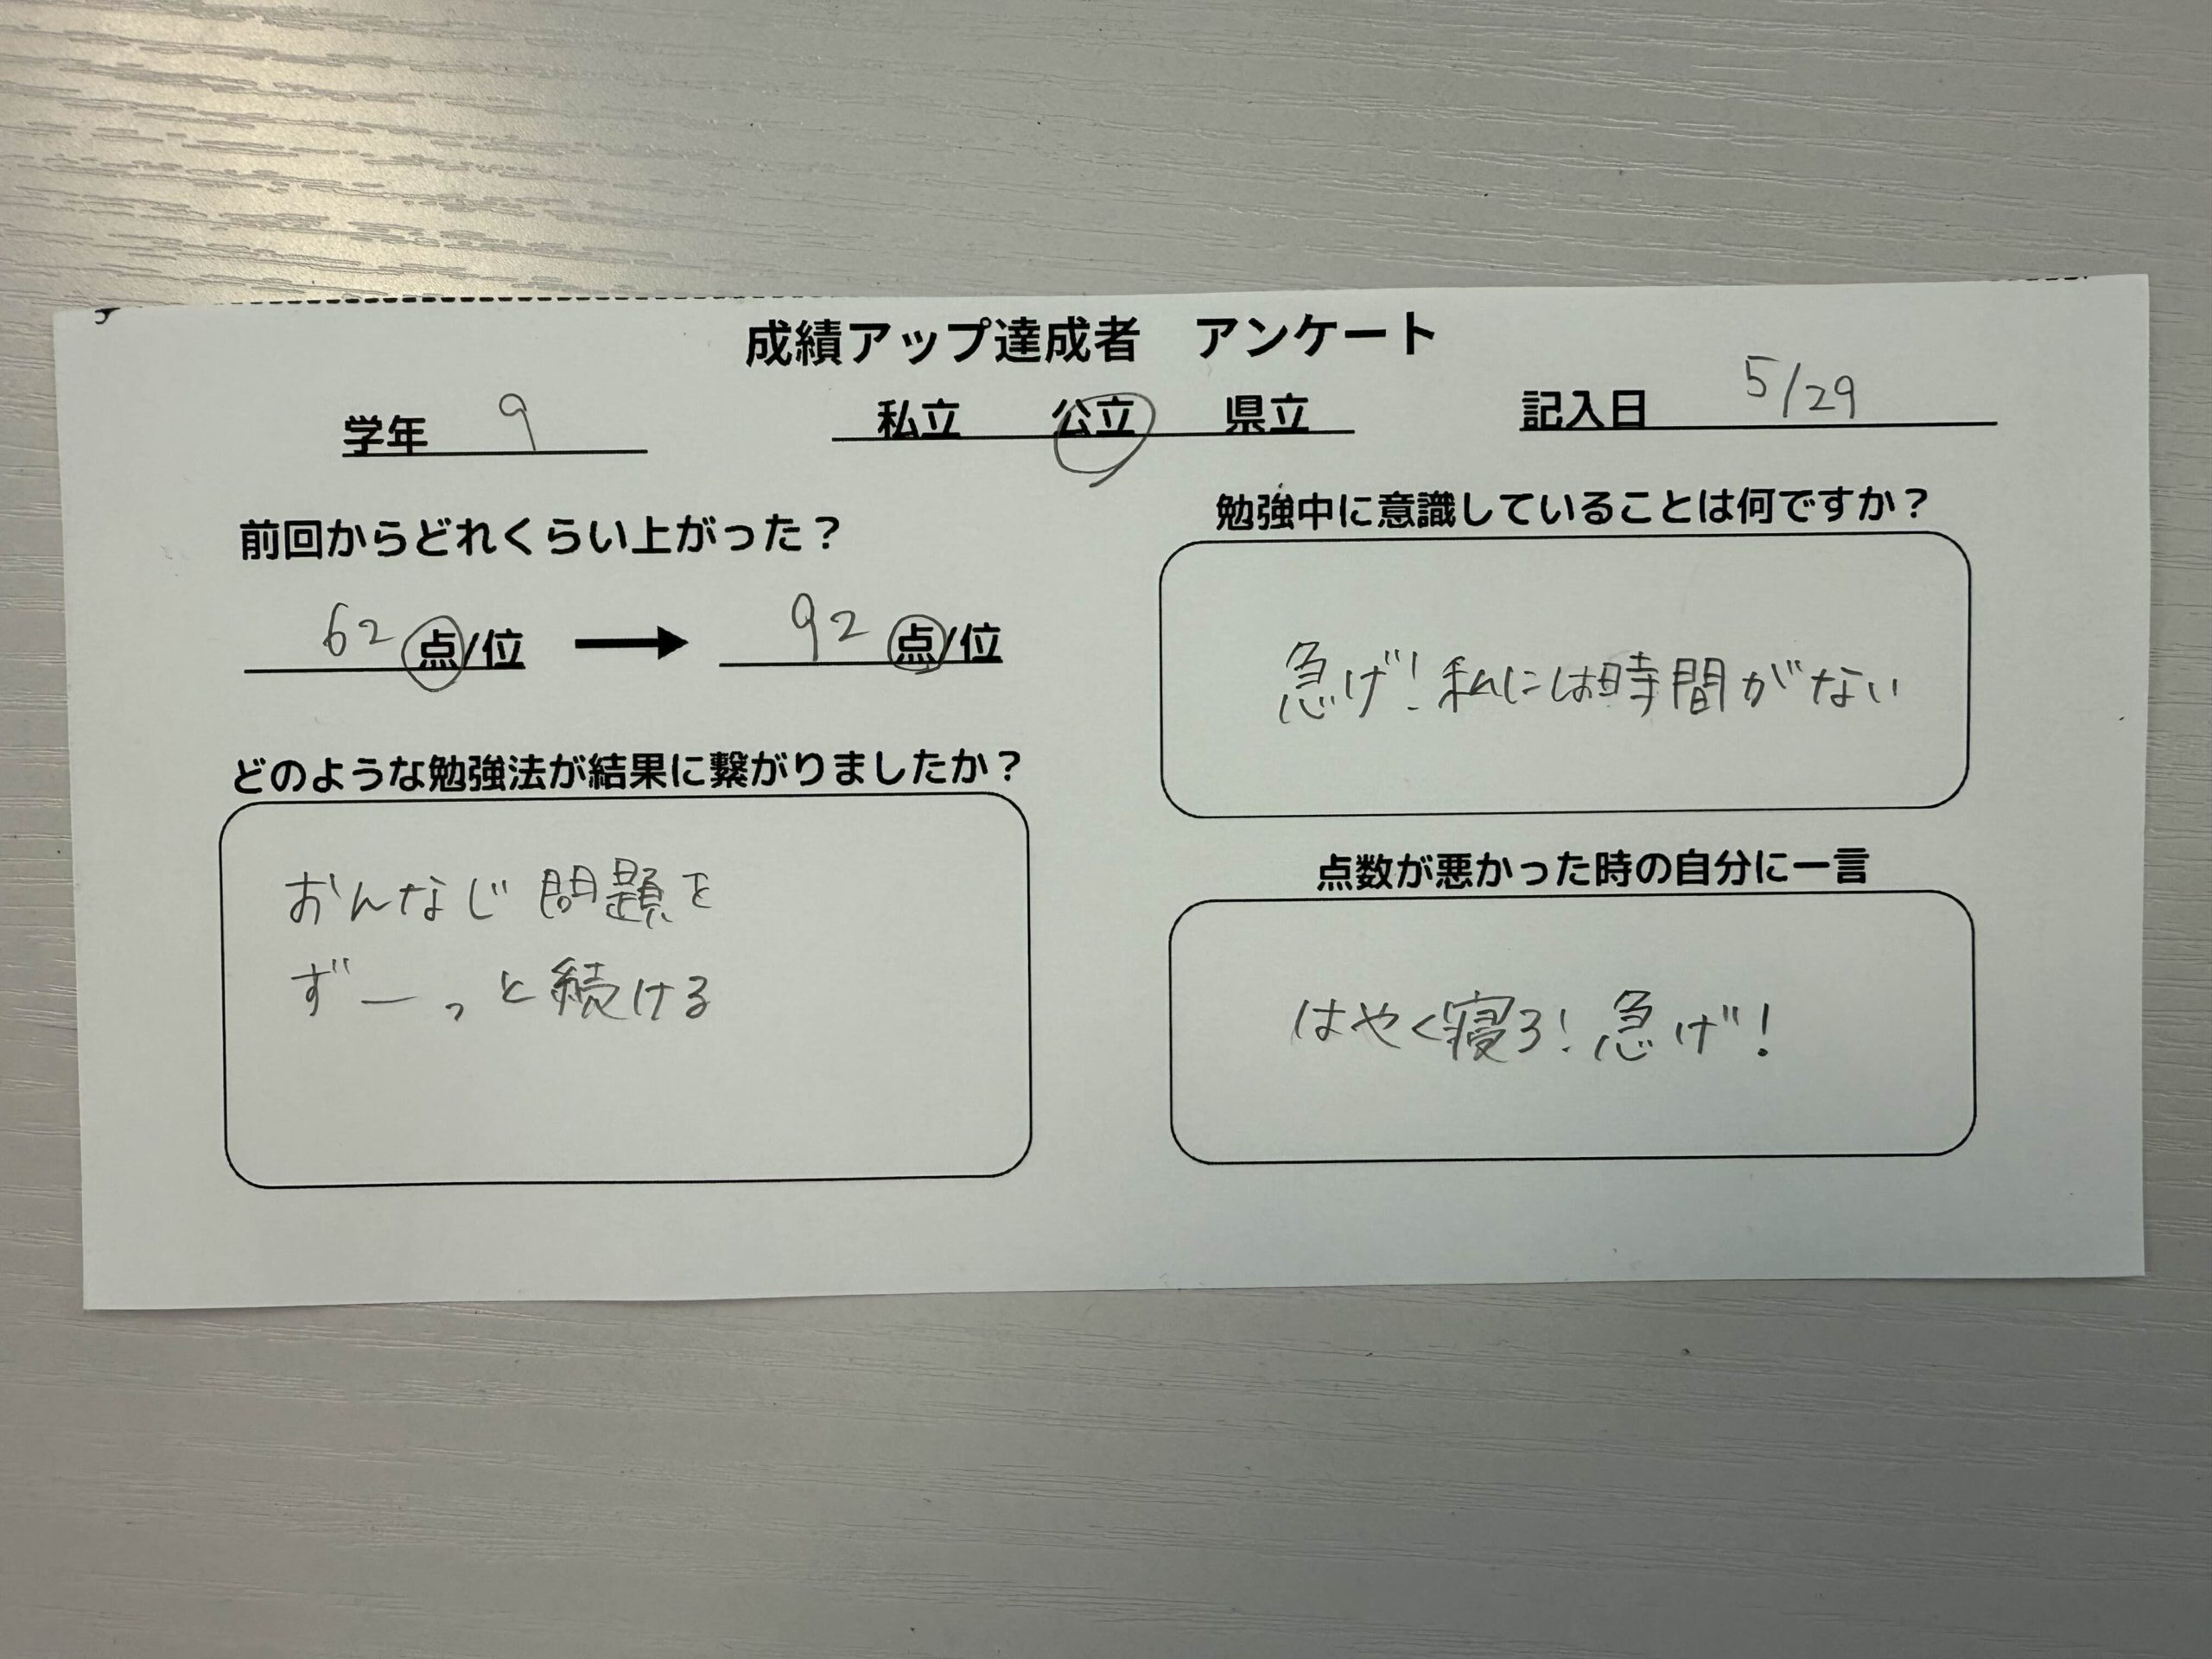 成績アップ達成者 アンケート
学年 9
私立 公立 県立
記入日 5/29
前回からどれくらい上がった？
62点/位 → 92点/位
どのような勉強法が結果に繋がりましたか？
おんなじ問題を
ずーっと続ける
勉強中に意識していることは何ですか？
急げ！私には時間がない
点数が悪かった時の自分に一言
はやく寝ろ！急げ！